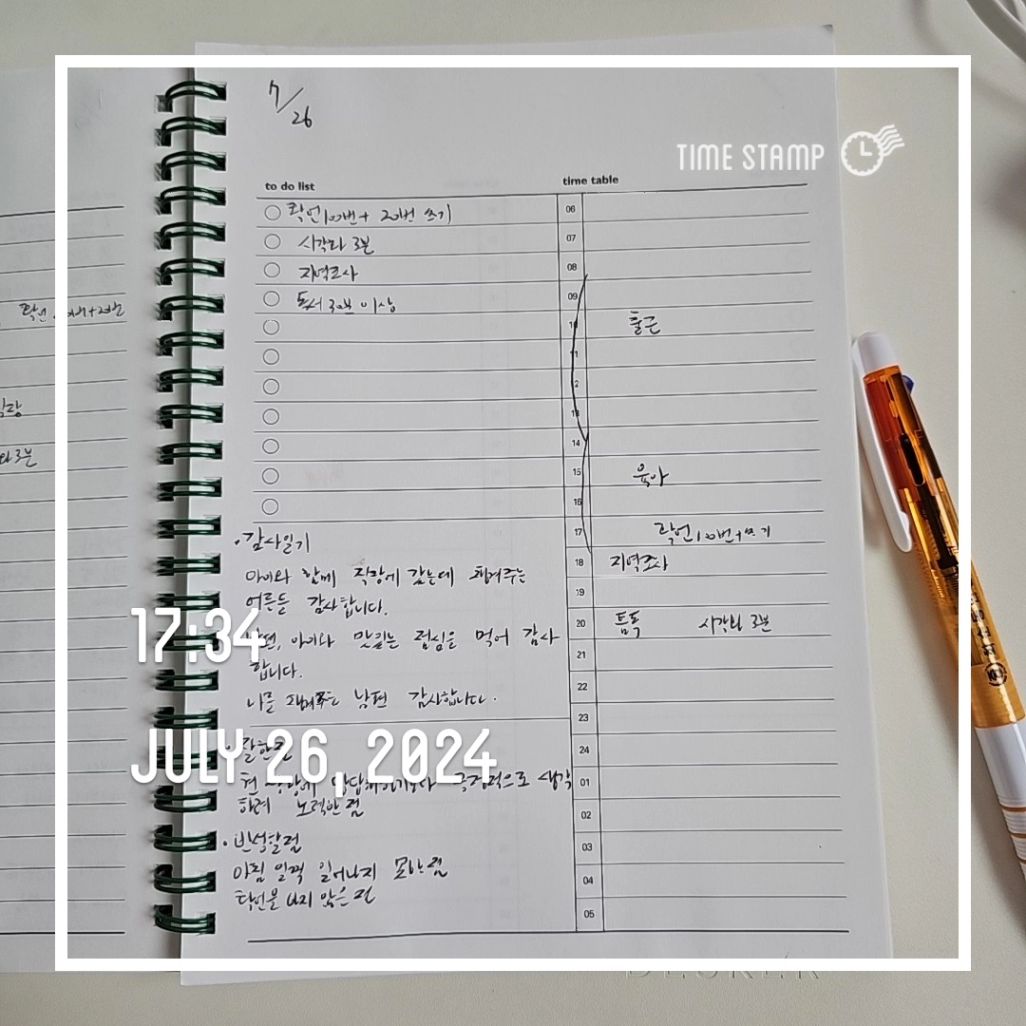 7/26
TIME STAMP
to do list
time table
확언 100번 + 20번 쓰기
시각화 3분
지역조사
독서 30분 이상
06
07
08
09
10
11
12
13
14
15
16
17
18
19
20
21
22
23
24
01
02
03
04
05
출근
육아
확언 100번 + 쓰기
지역조사
틈독 시각화 3분
• 감사일기
아이와 함께 직장에 갔는데 챙겨주는
어른들 감사합니다.
남편, 아이와 맛있는 점심을 먹어 감사
합니다.
나를 남편 감사합니다.
17:34
• 잘한점
현 상황에 긍정적으로 생각
하려 노력한 점
JULY 26, 2024
• 반성할점
아침 일찍 일어나지 못한 점
확언을 않은 점